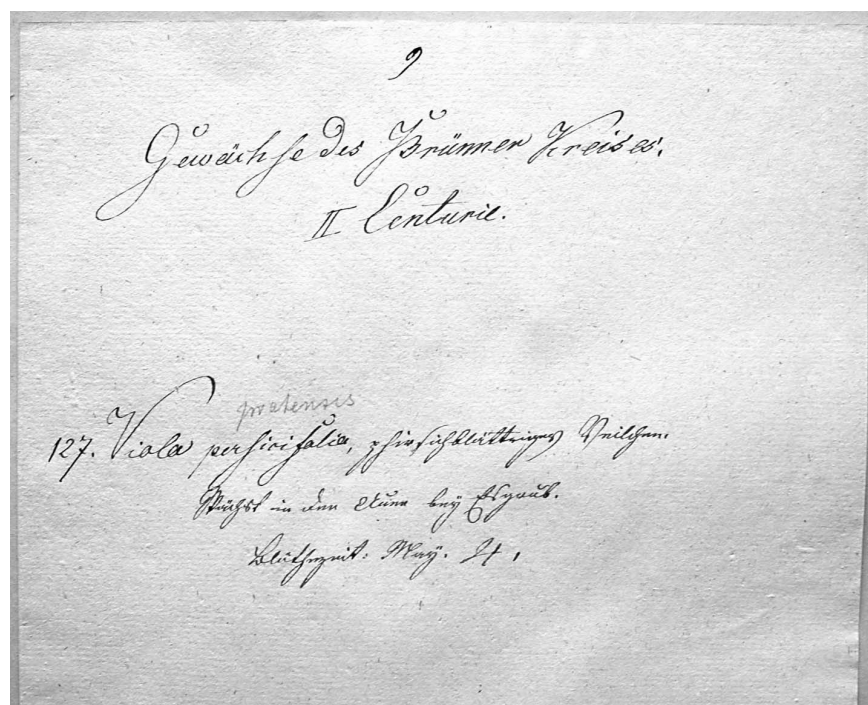 9
Gewächse des Brünner Kreises.
II Centurie.
pratensis
127. Viola persicifolia, phirsichblättriges Veilchen.
Wächst in den Auen bey Eisgrub.
Blüthezeit: May. ♃,